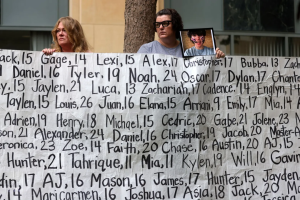 ack, 15 Gage, 14 Lexi, 15 Alex, 17 Christopher, 17 Bubba, 13 Za
Daniel, 16 Tyler, 19 Noah, 24 Oscar, 17 Dylan, 17 Chant
ey, 15 Jaylen, 21 Luca, 13 Zachariah, 17 Cadence, 14 Englyn,
Taylen, 15 Louis, 26 Juan, 16 Elana, 15 Amani, 9 Emily, 17 Mia, 14
Adrien, 19 Henry, 18 Michael, 15 Cedric, 20 Gabe, 21 Jolene, 23
son, 21 Alexander, 24 Daniel, 16 Christopher, Jacob, 20 Master
eronica, 23 Zoe, 14 Faith, 20 Chase, 16 Austin, 20 AJ, 15
Hunter, 21 Tahrique, 11 Mia, 11 Kylen, 19 Will, 16 Gavin
tin, 17 AJ, 16 Mason, 16 James, 17 Hunter, 15 Jayden
14 Maricarmen, 16 Joshua, 17 Asia, 18 Jack, 20